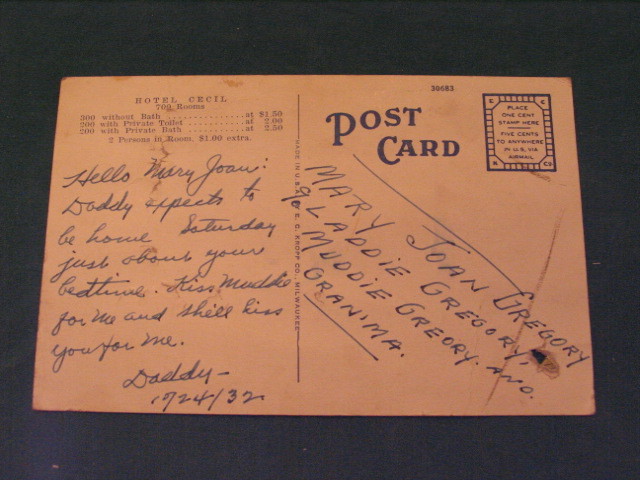 HOTEL CECIL
700 Rooms
300 without Bath ............... at $1.50
200 with Private Toilet ............ at 2.00
200 with Private Bath ............. at 2.50
2 Persons in Room, $1.00 extra.
Hello Mary Joan:
Daddy expects to
be home Saturday
just about your
bedtime. Kiss Muddie
for me and she'll kiss
you for me.
Daddy-
1/24/32
MADE IN U.S.A. BY E. C. KROPP CO., MILWAUKEE
39683
POST
CARD
PLACE
ONE CENT
STAMP HERE
FIVE CENTS
TO ANYWHERE
IN U.S. VIA
AIRMAIL
E C
K CO
MARY JOAN GREGORY
% LADDIE GREGORY,
MUDDIE GREORY. AND.
GRANIMA.